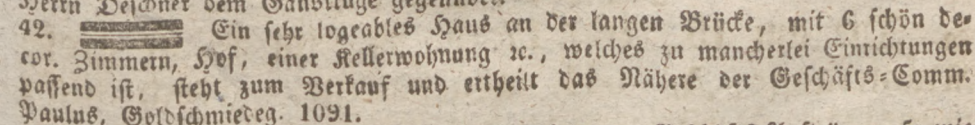 Herrn Oeschner dem
42. Ein sehr logeables Haus an der langen Brücke, mit 6 schön de-
cor. Zimmern, Hof, einer Kellerwohnung ꝛc., welches zu mancherlei Einrichtungen
passend ist, steht zum Verkauf und ertheilt das Nähere der Geschäfts-Comm.
Paulus, Goldschmiedeg. 1091.